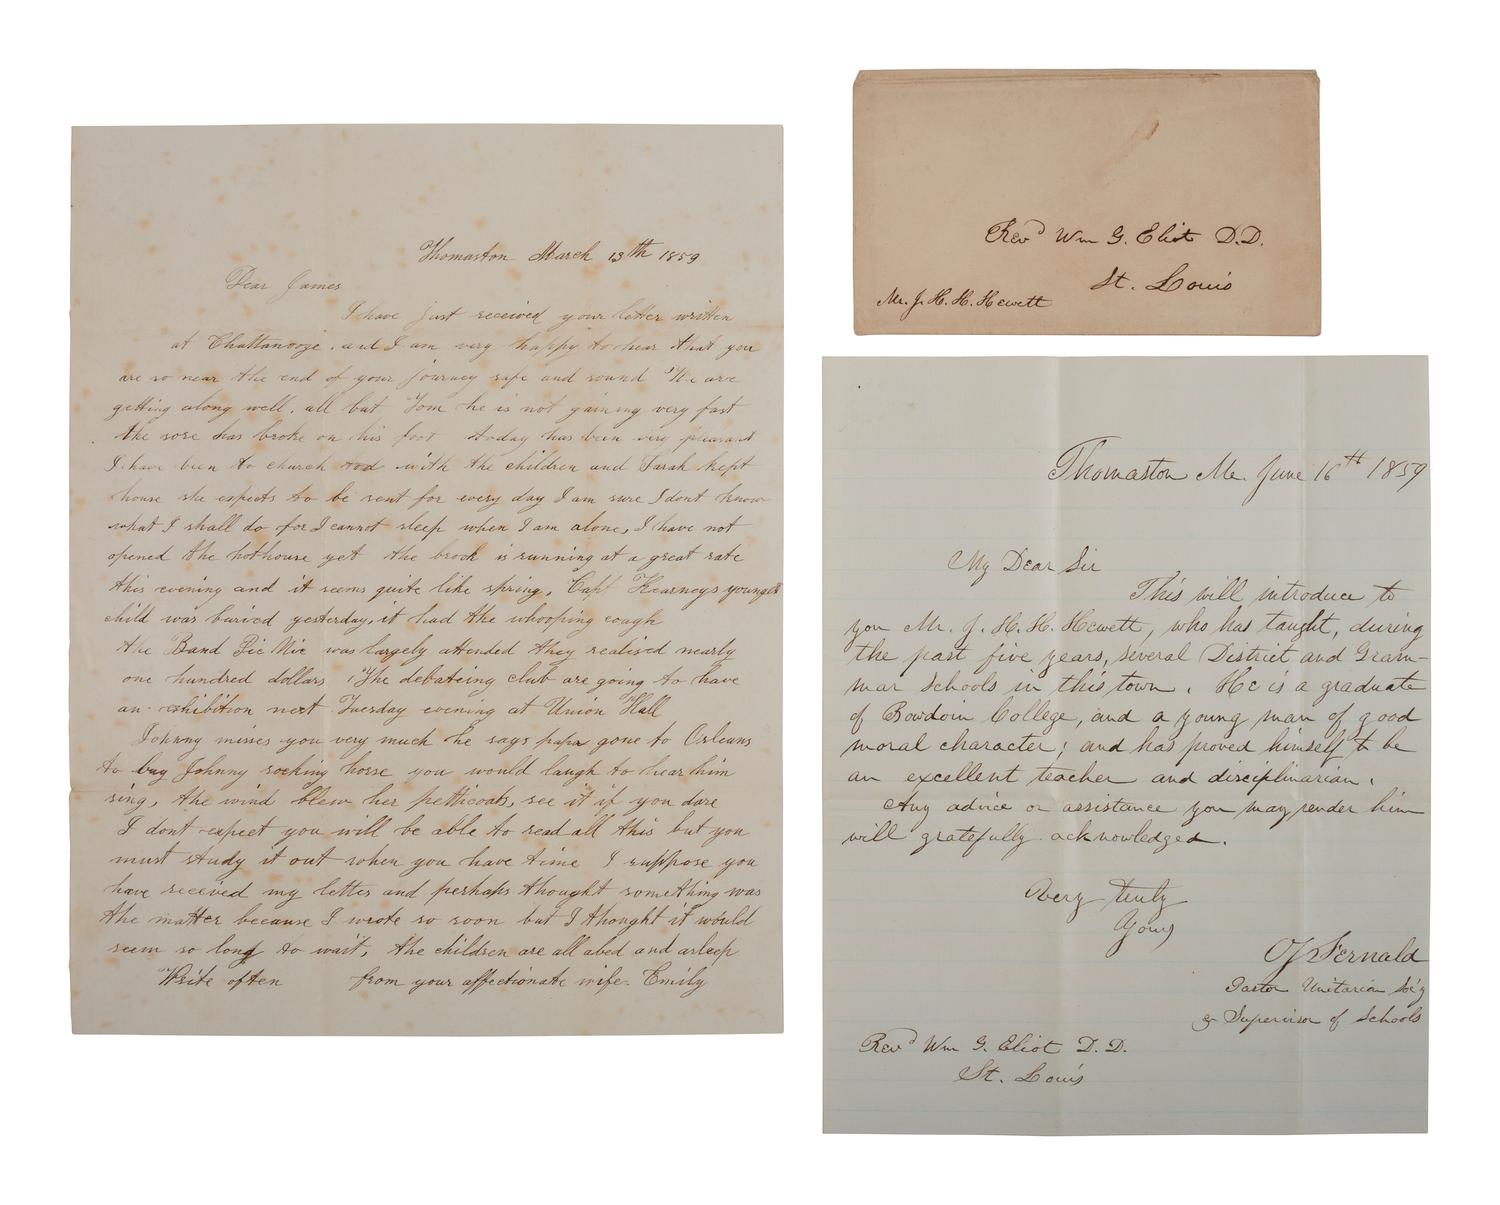 Thomaston March 13th 1859
Dear James
I have just received your letter written
at Chattanooge. and I am very happy to hear that you
are so near the end of your journey safe and sound We are
getting along well. all but Tom he is not gaining very fast
the sore has broke on his foot today has been very pleasant
I have been to church with the children and Sarah kept
house she expects to be sent for every day I am sure I dont know
what I shall do for I cannot sleep when I am alone, I have not
opened the hothouse yet the brook is running at a great rate
this evening and it seems quite like spring, Capt Kearneys youngest
child was buried yesterday, it had the whooping cough
the Band Pic Nic was largely attended they realised nearly
one hundred dollars The debateing club are going to have
an exhibition next Tuesday evening at Union Hall
Johnny misses you very much he says papa gone to Orleans
to buy Johnny rocking horse you would laugh to hear him
sing, the wind blew her petticoats, see it if you dare
I dont expect you will be able to read all this but you
must study it out when you have time I suppose you
have received my letter and perhaps thought something was
the matter because I wrote so soon but I thought it would
seem so long to wait, the children are all abed and asleep
Write often from your affectionate wife. Emily
Revd Wm G. Eliot D.D.
St. Louis
Mr. J. H. H. Hewett
Thomaston Me. June 16th 1859
My Dear Sir
This will introduce to
you Mr. J. H. H. Hewett, who has taught, during
the past five years, several District and Gram-
mar Schools in this town. He is a graduate
of Bowdoin College, and a young man of good
moral character; and has proved himself to be
an excellent teacher and disciplinarian.
Any advice or assistance you may render him
will gratefully acknowledged.
Very truly
Yours
O J Fernald
Pastor Unitarian Soc'y
& Supervisor of Schools
Revd Wm G. Eliot D.D.
St. Louis